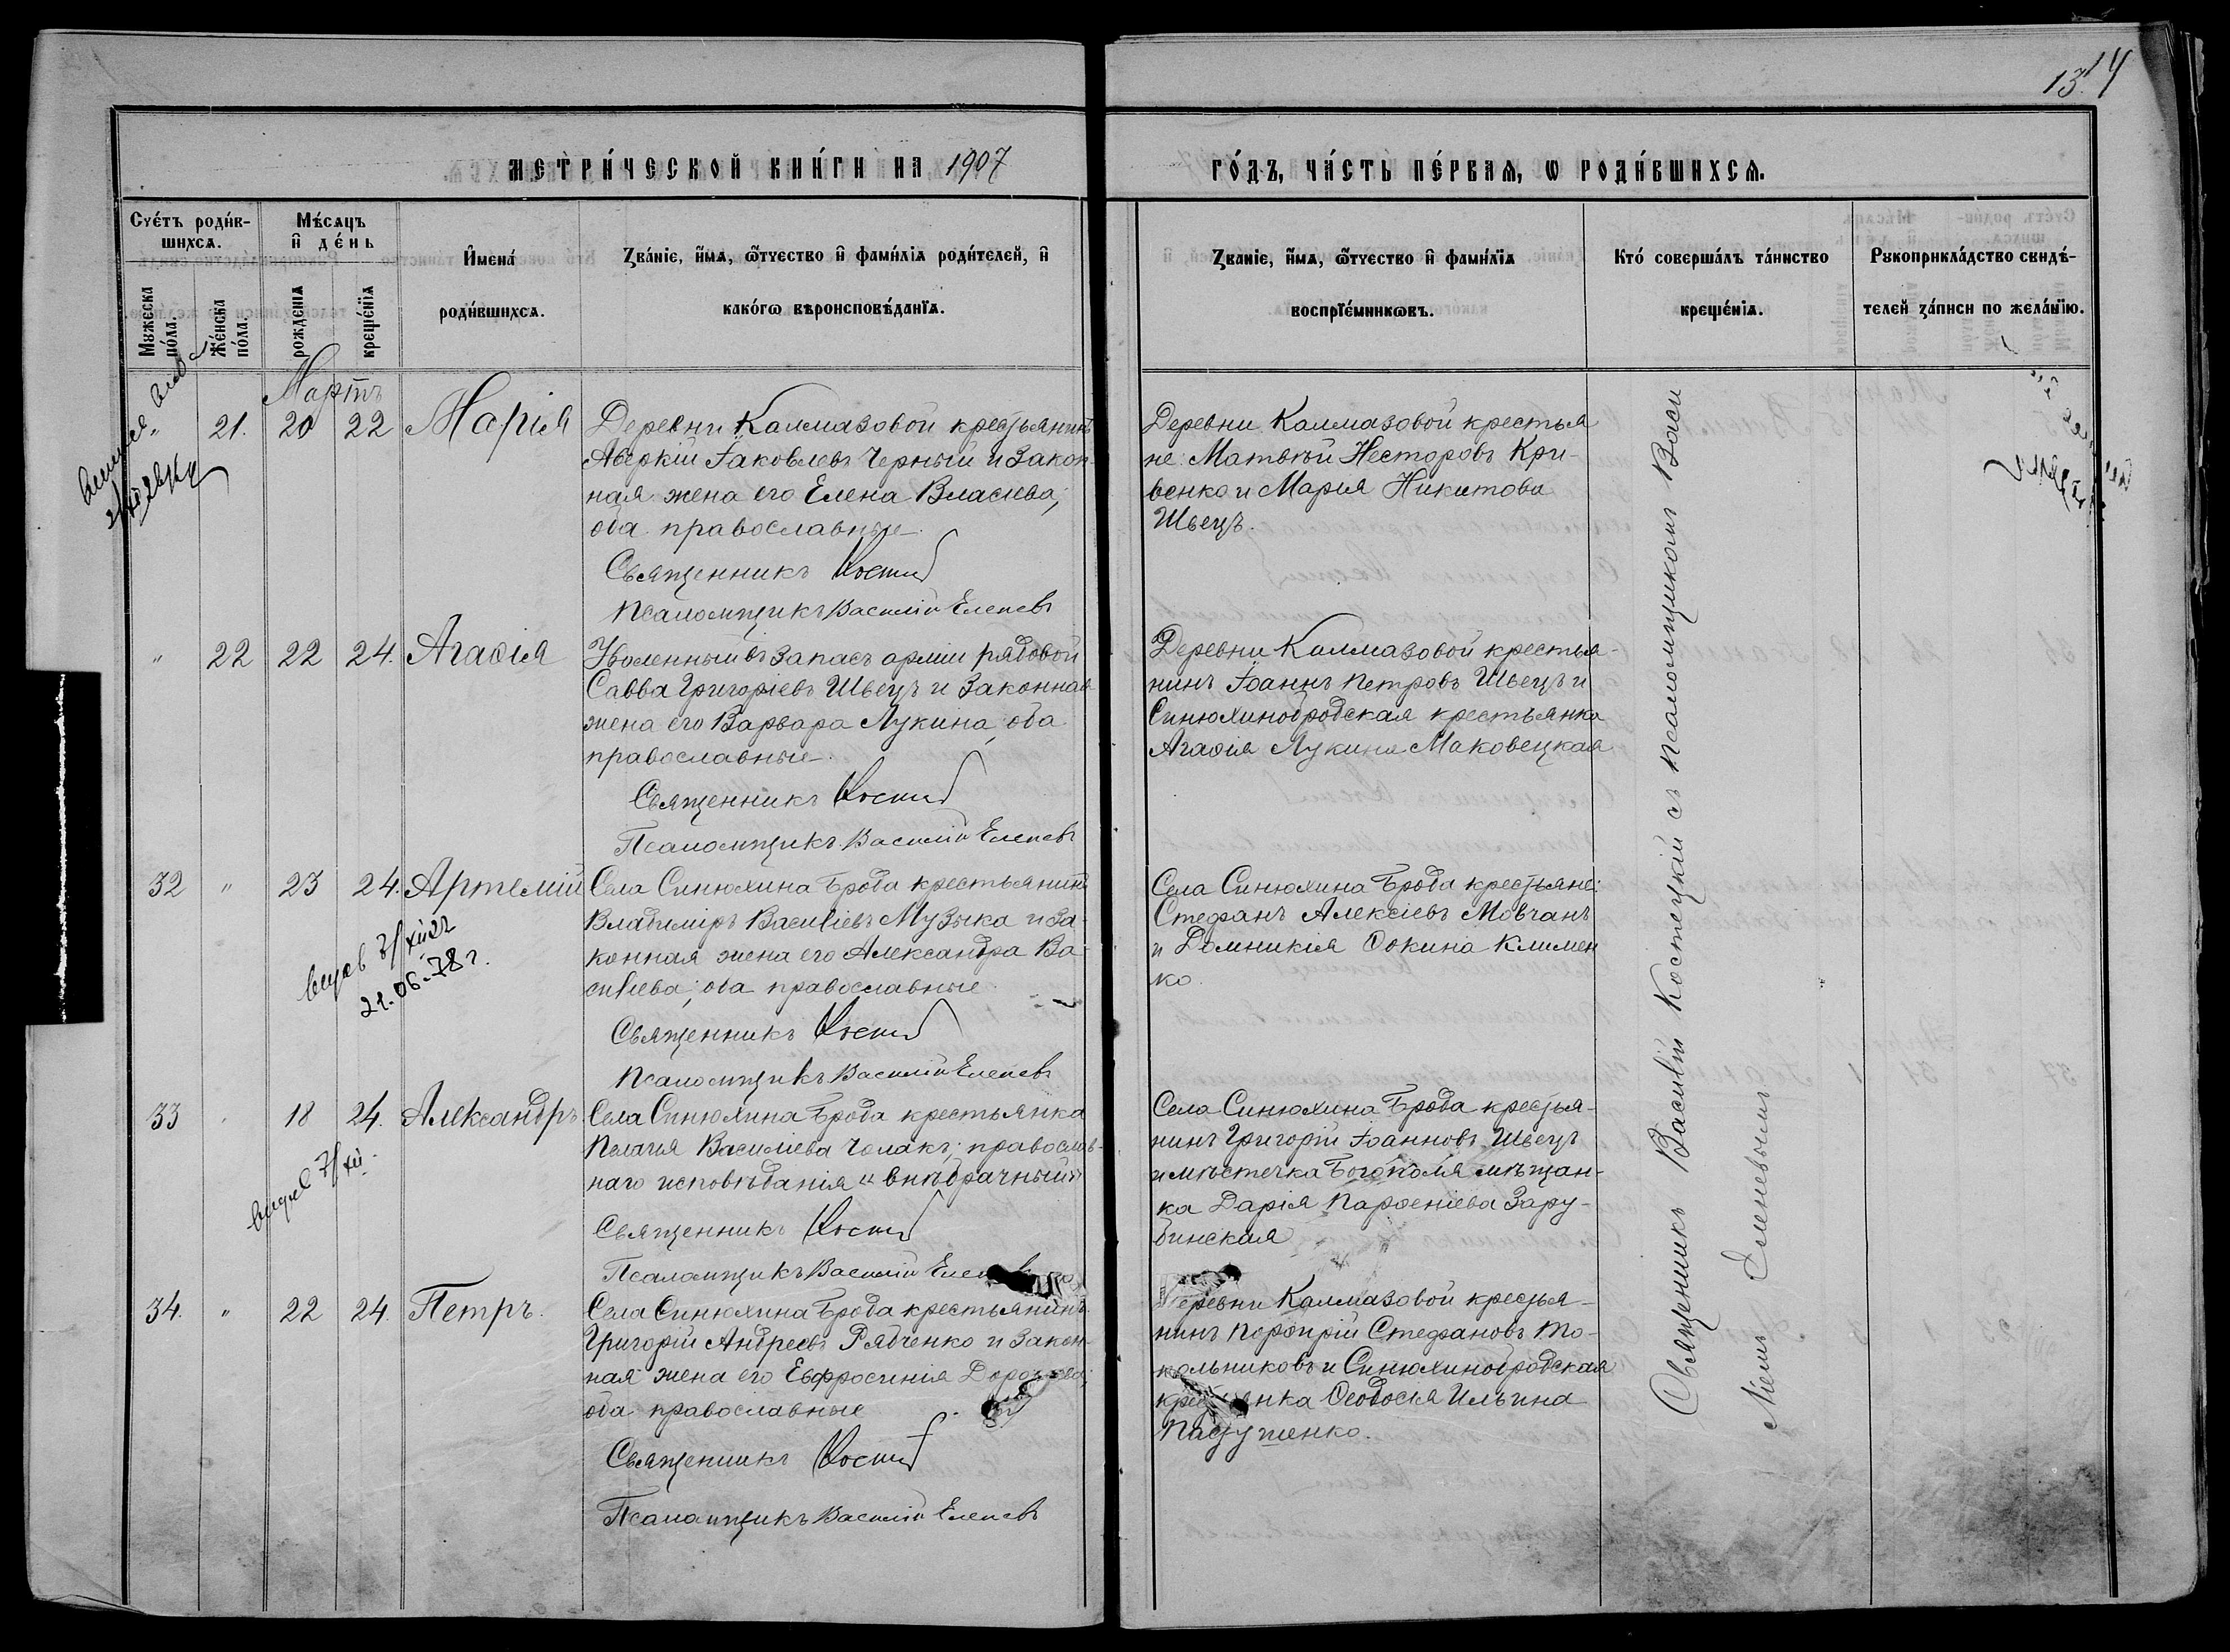 13. 14
МЕТРИ́ЧЕСКОЙ КНИ́ГИ НА 1907
ГО́ДЪ, ЧА́СТЬ ПЕ́РВАѦ, Ѡ РОДИ́ВШИХСѦ.
Сче́тъ роди́в-
шихсѧ.
Мꙋжеска по́ла.
Же́нска по́ла.
Мѣ́сѧцъ
и҆ де́нь
рожденіѧ
креще́нїѧ
И҆мена́
роди́вшихсѧ.
Зва́нїе, и҆́мѧ, ѻ҆́тчество и҆ фами́лїѧ роди́телей, и҆
како́гѡ вѣроисповѣ́данїѧ.
Званїе, и҆́мѧ, ѻ҆́тчество и҆ фами́лїѧ
воспрїе́мникѡвъ.
Кто́ соверша́лъ та́инство
креще́нїѧ.
Рꙋкоприкла́дство свидѣ́-
телей за́писи по жела́нїю.
Мартъ
" 21. 20 22 Марія
Деревни Калмазовой крестьянинъ
Аверкій Іаковлевъ Черный и закон-
ная жена его Елена Власіева,
оба православные
Священникъ
Псаломщикъ Василій Елепевъ
Деревни Калмазовой крестья
не: Матвѣй Несторовъ Кри-
венко и Марія Никитова
Швецъ.
" 22 22 24. Агаѳія
Уволенный въ запасъ арміи рядовой
Савва Григоріевъ Швецъ и законная
жена его Варвара Лукина, оба
православные.
Священникъ
Псаломщикъ Василій Елепевъ
Деревни Калмазовой крестья-
нинъ Іоаннъ Петровъ Швецъ и
Синюхинобродская крестьянка
Агаѳія Лукина Маковецкая
32 " 23 24. Артемій
21.06.78 г.
Села Синюхина Брода крестьянинъ
Владиміръ Василіевъ Музыка и за-
конная жена его Александра Ва-
силіева; оба православные
Священникъ
Псаломщикъ Василій Елепевъ
Села Синюхина Брода крестьяне:
Стефанъ Алексіевъ Мовчанъ
и Домникія Ѳокина Климен
ко.
33 " 18 24. Александръ
Села Синюхина Брода крестьянка
Пелагія Василіева Чолакъ, православ-
наго исповѣданія „внѣбрачный"
Священникъ
Псаломщикъ Василій
Села Синюхина Брода крестья-
нинъ Григорій Іоанновъ Швецъ
и мѣстечка Богополя мѣщан-
ка Дарія Парѳеніева Зару-
бинская
34. " 22 24. Петръ.
Села Синюхина Брода крестьянинъ
Григорій Андреевъ Рябченко и закон-
ная жена его Евфросинія
оба православные
Священникъ
Псаломщикъ Василій Елепевъ
Деревни Калмазовой крестья-
нинъ Порфирій Стефановъ То-
кольниковъ и Синюхинобродская
крестьянка Ѳеодосія Ильина
Священникъ Василій Костецкій съ псаломщикомъ Васи
ліемъ Елепевымъ